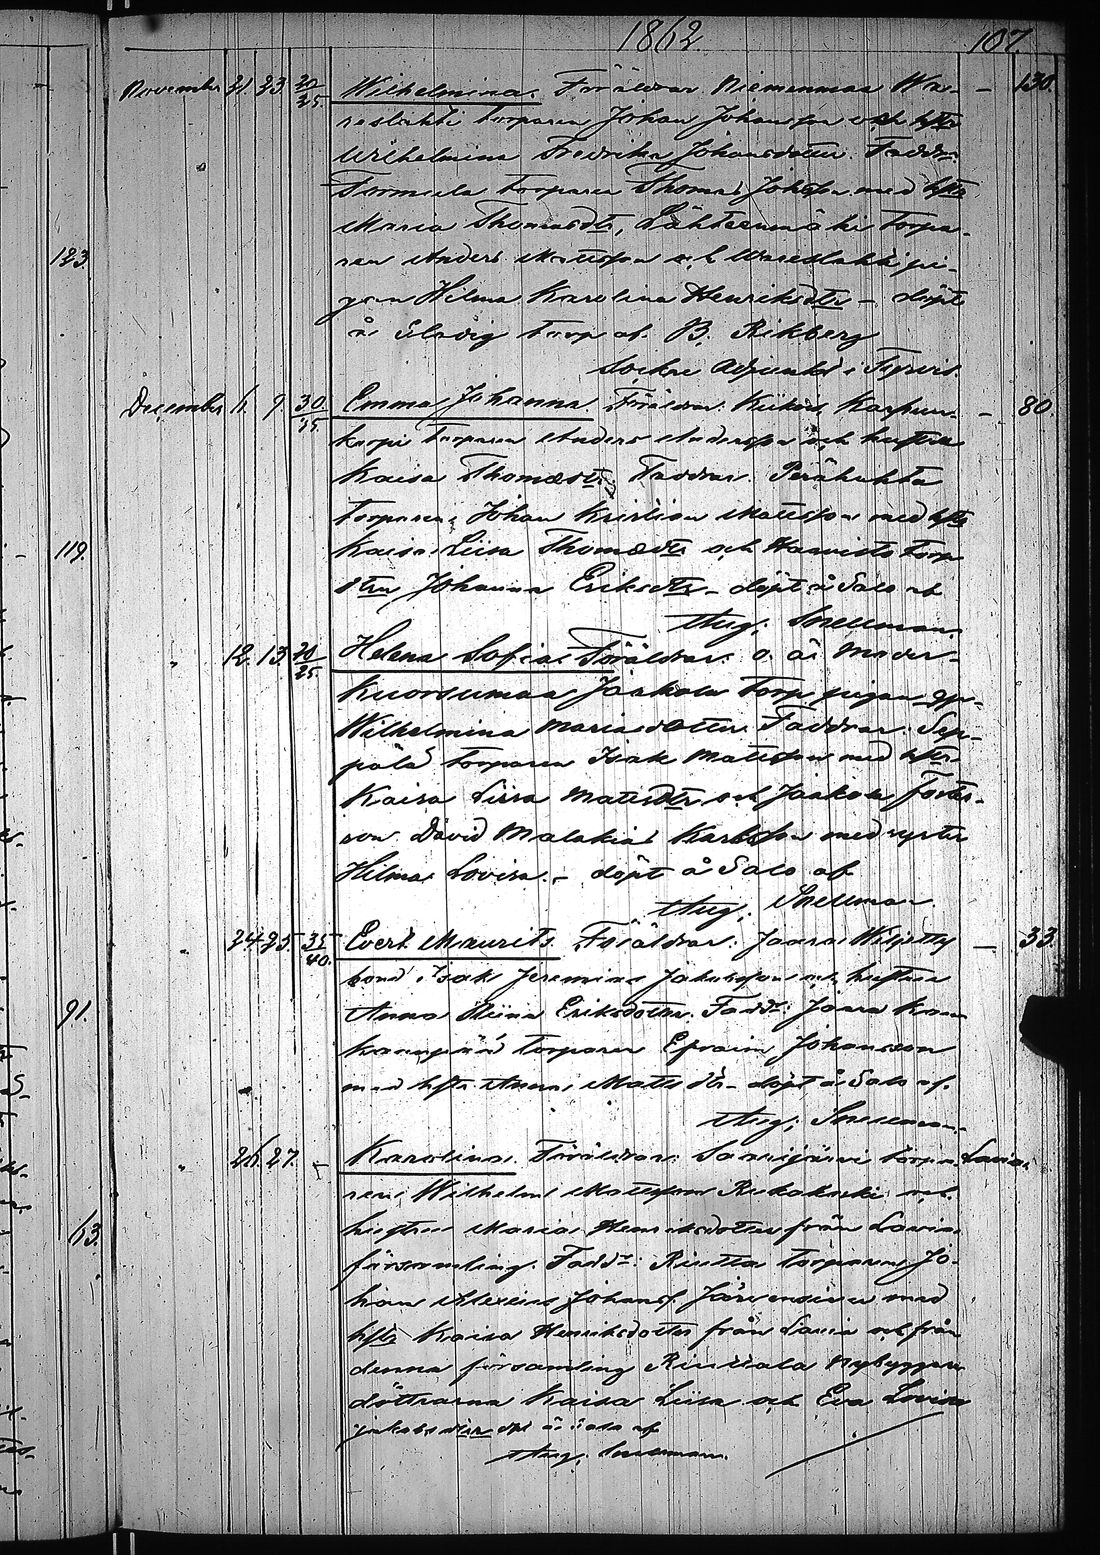 1862 107.
November 21. 23. 20/25 Wilhelmina. Föräldrar Niemenmaa Wa- — 130.
reslahti torparen Johan Johansson och hstr
Wilhelmina Fredrika Johansdotter. Faddr:
torparen Thomas Johsson med hstr
Maria Thomasdtr, Lähteenmäki torpa-
ren Anders Mattsson och Wareslahti pi-
gan Hilma Karolina Henriksdtr — döpt
å torp af B. Rikberg
Sockne Adjunkt i
123.
December 6. 9. 30/35. Emma Johanna. Föräldrar: — 80.
korpi Torparen Anders Andersson och hustru
Kaisa Thomasdtr. Faddrar. Perähuhta
torparen Johan Kristian Mattsson med hstr
119.
Kaisa Liisa Thomasdtr och Harvisto torp
dtrn Johanna Eriksdtr — döpt å Salo af
Aug. Snellman.
" 12. 13. 20/25. Helena Sofia. Föräldrar: o. ä. Moder-
Kuorsumaa Jaakola torp pigan
Wilhelmina Mariasdotter. Faddrar: Sep-
pälä torparen Isak Mattsson med hstr
Kaisa Liisa Mattsdtr och Jaakola foster-
son David Malakias Karlsson med syster
Hilma Lovisa. — döpt å Salo af
Aug. Snellman.
" 24. 25. 35/40. Evert Maurits. Föräldrar: Jaara — 33.
bond. Isak Jeremias Jakobsson och hustrun
91.
Anna Stiina Eriksdotter. Faddr: Jaara
torparen Efraim Johansson
med hstr Anna Mattsdtr — döpt å Salo af.
Aug. Snellman.
" 26. 27. — Karolina. Föräldrar: Saarijärvi torpa- Lavia.
ren Wilhelm Mattsson och
63.
hustru Maria Henriksdotter från Lavia
församling. Faddr: torparen Jo-
han Alexius Johanss. med
hstr Kaisa Henriksdotter från Lavia och från
denna församling nybyggare
döttrarna Kaisa Liisa och Eva Lovisa
Jakobsdtrar dpt å Salo af
Aug. Snellman.